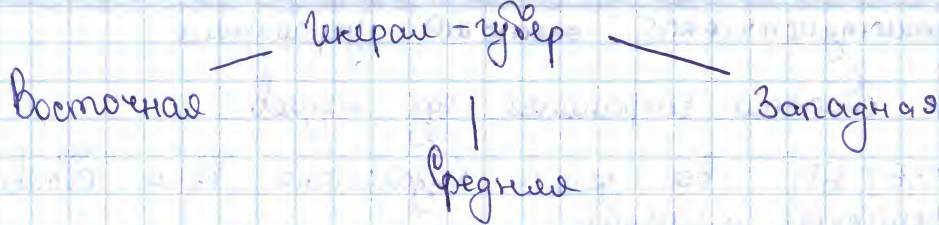 Генерал-губер
Восточная
Западная
Средняя